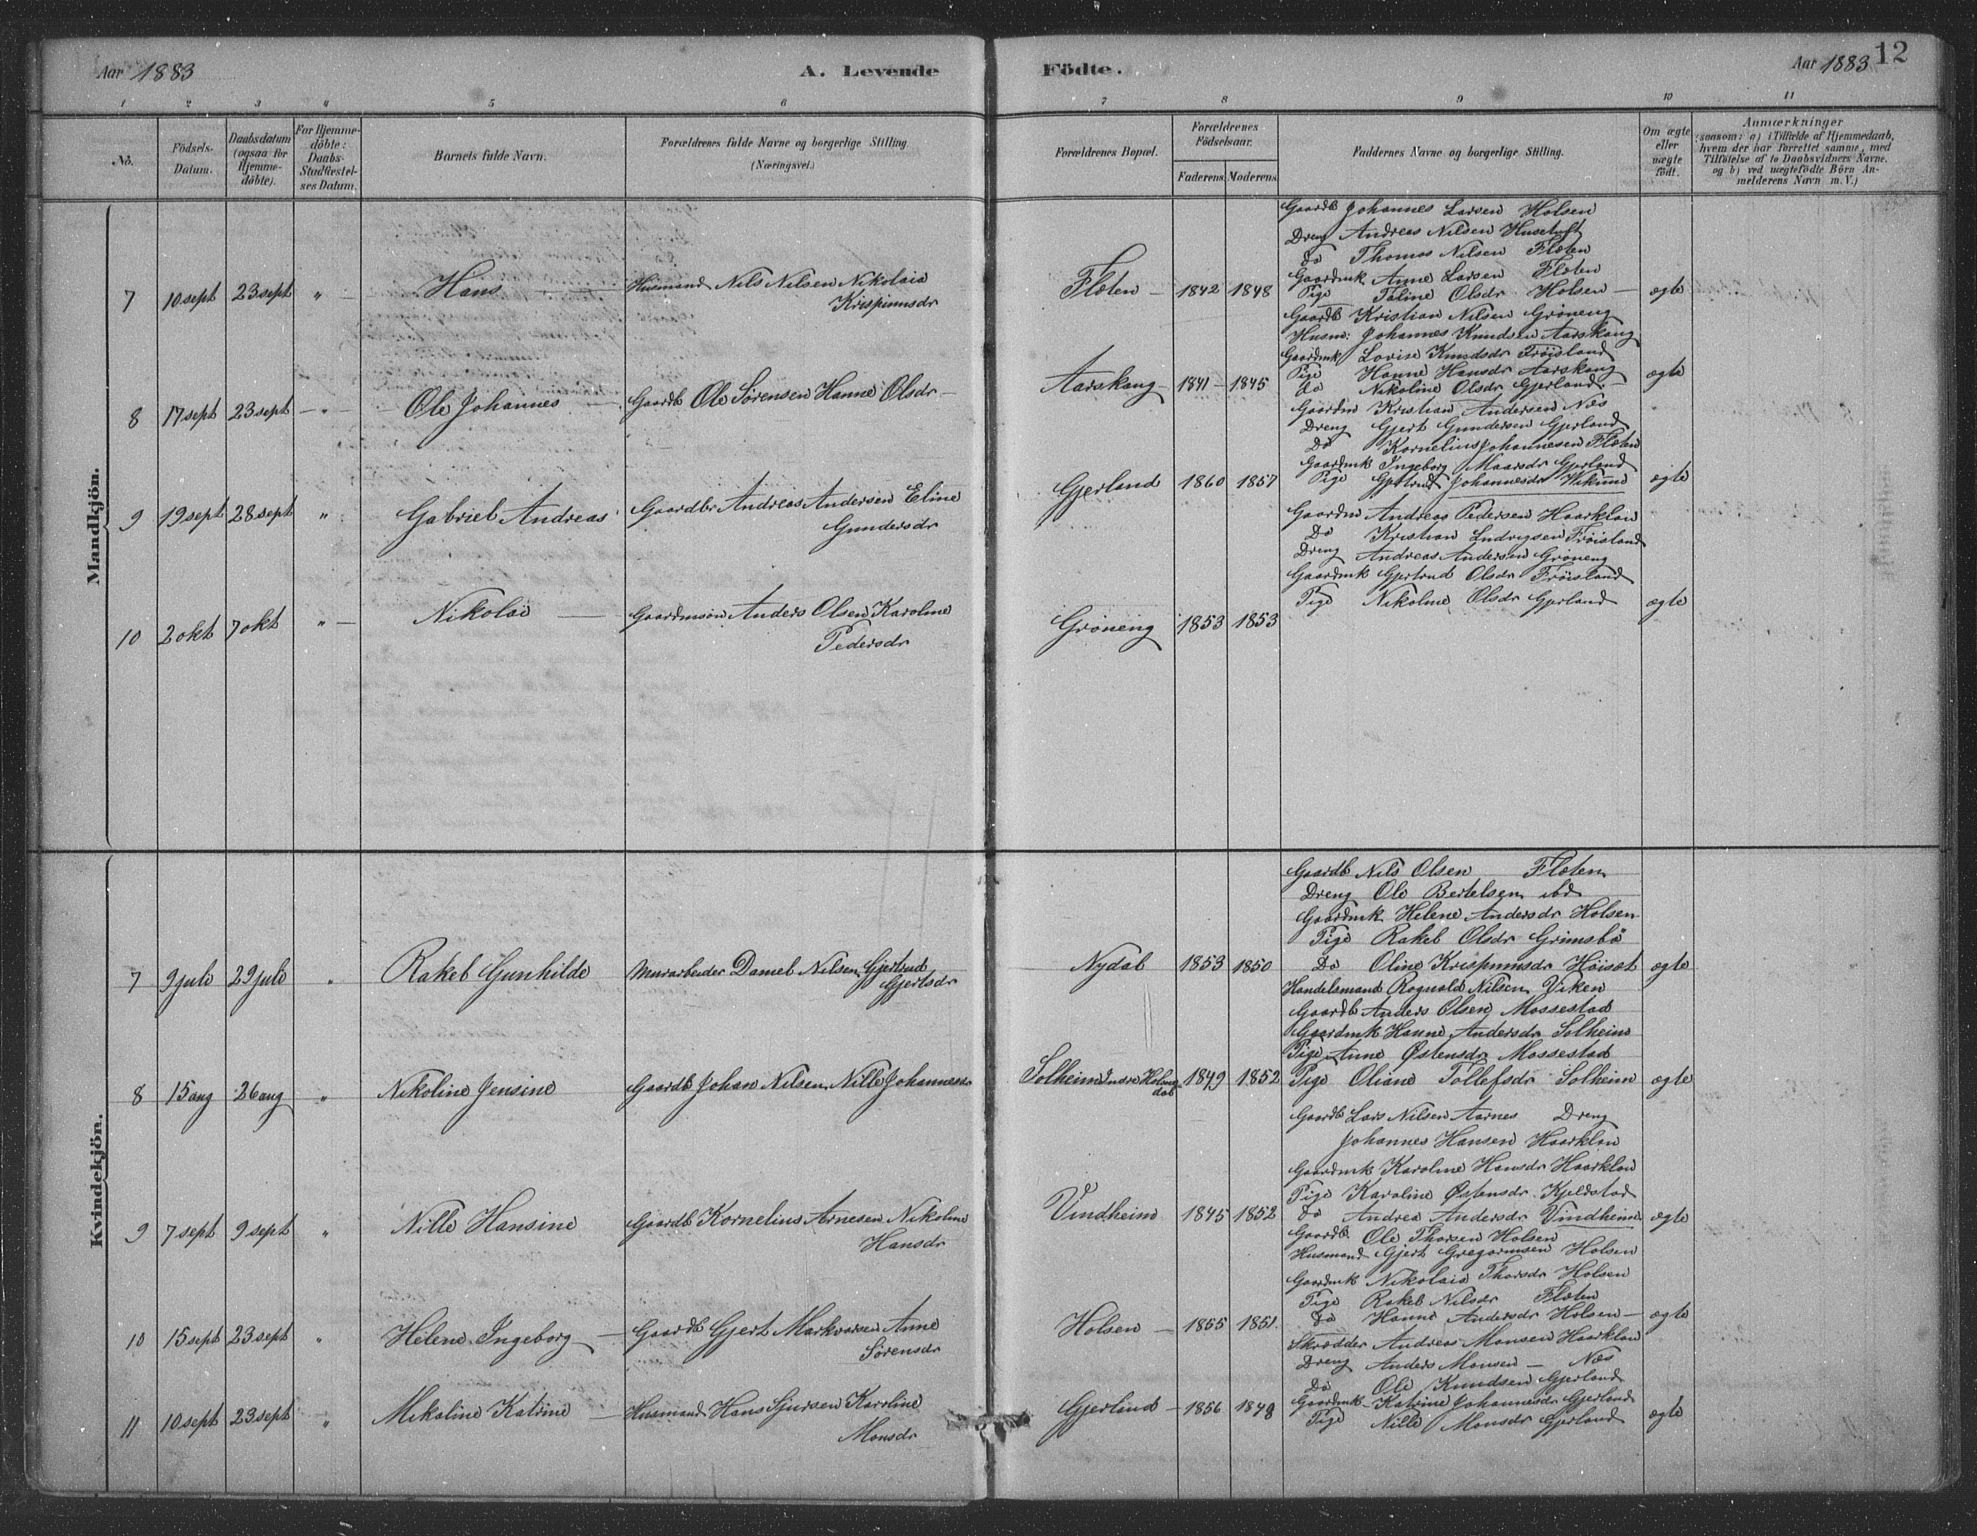 Aar 1883 A. Levende Födte. Aar 1883 12
1 2 3 4 5 6 7 8 9 10 11
No. Födsels-Datum. Daabsdatum (ogsaa for Hjemme-döbte). For Hjemme-döbte: Daabs-Stadfæstel-ses Datum. Barnets fulde Navn. Forældrenes fulde Navne og borgerlige Stilling (Næringsvei.) Forældrenes Bopæl. Forældrenes Födselsaar. Faderens. Moderens. Faddernes Navne og borgerlige Stilling. Om ægte eller uægte födt. Anmærkninger (saasom: a) i Tilfælde af Hjemmedaab, hvem der har forrettet samme, med Tilföielse af to Daabsvidners Navne, og b) ved uægtefödte Börn An-melderens Navn m. V.)
Mandkjön.
Gaardb Johannes Larsen Holsen
Dreng Andreas Nilsen Husetuft
Do Thomas Nilsen Fløten
Gaardmk Anne Larsen Fløten
7 10 sept 23 sept " Hans Husmand Nils Nilsen Nikolaia Fløten 1842 1848 Pige Taline Olsdr Holsen ægte
Krispinusdr
Gaardb Kristian Nilsen Grøneng
Husm: Johannes Knudsen Aarskaug
Gaardmk Lovise Knudsdr Frøisland
Pige Hanne Hansdr Aarskaug
8 17 sept 23 sept " Ole Johannes Gaardb Ole Sørensen Hanne Olsdr Aarskaug 1841 1845 Do Nikoline Olsdr Gjerland ægte
Gaardm Kristian Andersen Næs
Dreng Gjert Gundersen Gjerland
Do Kornelius Johannesen Fløten
Gaardmk Ingeborg Gjerland
9 19 sept 28 sept " Gabriel Andreas Gaardbr Andreas Andersen Eline Gjerland 1860 1857 Pige Gjertrud Johannesdr ægte
Gundersdr
Gaardm Andreas Pedersen Haarklau
Do Kristian Ludvigsen Frøisland
Dreng Andreas Andersen Grøneng
Gaardmk Gjertrud Olsdr Frøisland
10 2 okt 7 okt " Nikolai Gaardmsøn Anders Olsen Karoline Grøneng 1853 1853 Pige Nikoline Olsdr Gjerland ægte
Pedersdr
Kvindekjön.
Gaardb Nils Olsen Fløten
Dreng Ole Bertelsen ibd
Gaardmk Helene Andersdr Holsen
Pige Rakel Olsdr Grimsbø
7 9 juli 29 juli " Rakel Gunhilde Murarbeider Daniel Nilsen, Gjertrud Nydal 1853 1850 Do Oline Krispinusdr Høisæt ægte
Gjertsdr
Handelsmand Rognald Nilsen Viken
Gaardb Anders Olsen Mossestad
Gaardmk Hanne Andersdr Solheim
Pige Anne Østensdr Mossestad
8 15 aug 26 aug " Nikoline Jensine Gaardb Johan Nilsen, Nille Johannesdr Solheim Indre Holme-dal 1849 1852 Pige Oliane Tollefsdr Solheim ægte
Gaardb Lars Nilsen Aarnes Dreng
Johannes Hansen Haarklau
Gaardmk Karoline Hansdr Haarklau
Pige Karoline Østensdr Kjelstad
9 7 sept 9 sept " Nille Hansine Gaardb Kornelius Arnesen Nikoline Vindheim 1845 1852 Do Andrea Andersdr Vindheim ægte
Hansdr
Gaardb Ole Thorsen Holsen
Husmand Gjert Gregoriussen Holsen
Gaardmk Nikolaia Thorsdr Holsen
Pige Rakel Nilsdr Fløten
10 15 sept 23 sept " Helene Ingeborg Gaardb Gjert Markvorsen Anne Holsen 1855 1851 Do Hanne Andersdr Holsen ægte
Sørensdr
Skrædder Andreas Monsen Haarklau
Dreng Anders Monsen Næs
Do Ole Knudsen Gjerland
Gaardmk Katrine Johannesdr Gjerland
11 10 sept 23 sept " Mikaline Katrine Husmand Hans Sjursen Karoline Gjerland 1856 1848 Pige Nille Monsdr Gjerland ægte
Monsdr